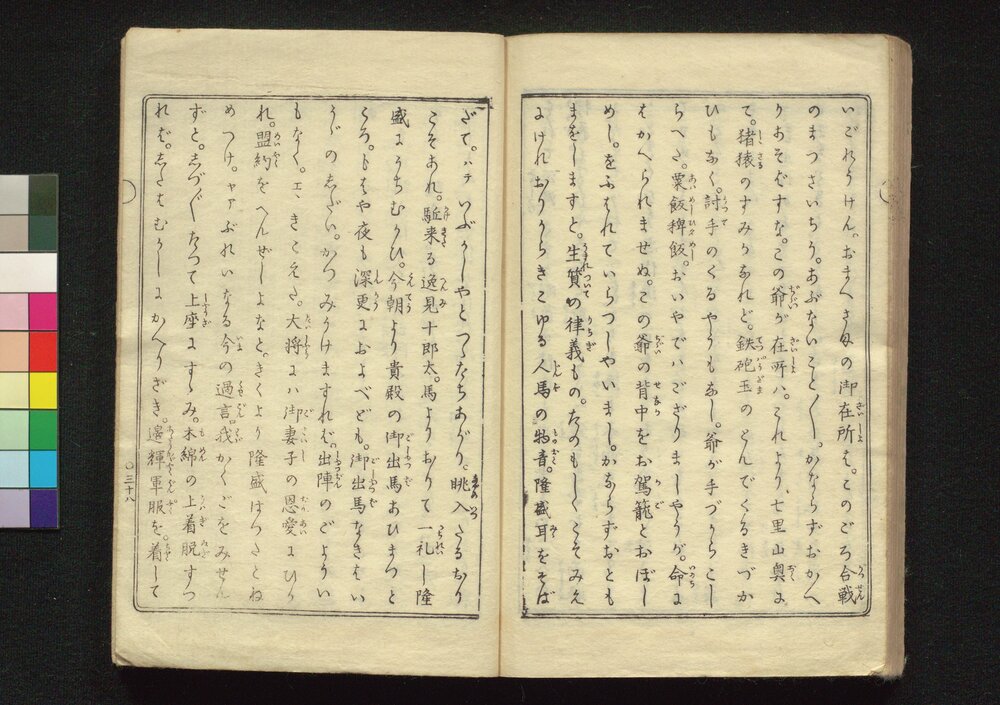 いごれうけん。おまへさまの御在所は。このごろ合戦
のまつさいちう。あぶないこと〳〵。かならずおかへ
りあそばすな。この爺が在所ハ。これより、七里山奥よ
て。猪猿のすみかなれど。鉄砲玉のとんでくるきづか
ひもなく。討手のくるやうもなし。爺が手づからこし
らへた。粟飯稗飯。おいやでハござりましやうが。命に
はかへられませぬ。この爺の背中をお駕籠とおぼし
めし。をふさつていらつしやいまし。かならずおとも
まをしますと。生質の律義もの。たのもしくこそみえ
にけれおりからきこゆる人馬の物音。隆盛耳をそば
だて。ハテいぶかしやとつゝたちあがり。眺入たるなり
こそあれ。駈来る逸見十郎太。馬よりおりて一礼し隆
盛にうちむかひ。今朝より貴殿の御出馬あひまつと
ころ。もはや夜も深更におよべども。御出馬なきはい
かゞのしだい。かつみうけますれば。出陣のごようい
もなく。エ、きこえた。大将にハ御妻子の恩愛にひか
れ。盟約をへんぜしよなと。きくより隆盛はつたとね
めつけ。ヤアぶれいなる今の過言。我かくごをみせん
ずと。しづ〳〵たつて上座にすゝみ。木綿の上着脱すつ
れば。したはむかしにかへりざき。邊輝軍服を。着して
〇三十八